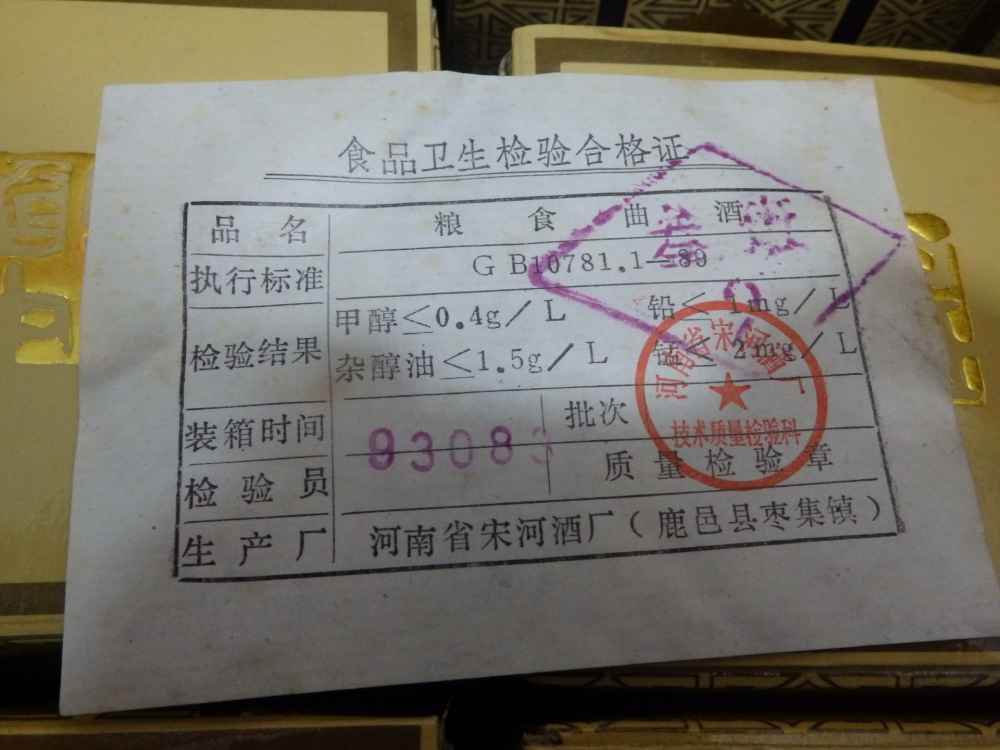 食品卫生检验合格证
品名 粮食曲酒
执行标准 GB10781.1—89
检验结果 甲醇≤0.4g/L 铅≤1mg/L
杂醇油≤1.5g/L 锰≤2mg/L
装箱时间 93083 批次
检验员 质量检验章
生产厂 河南省宋河酒厂（鹿邑县枣集镇）
河南省宋河酒厂
技术质量检验科